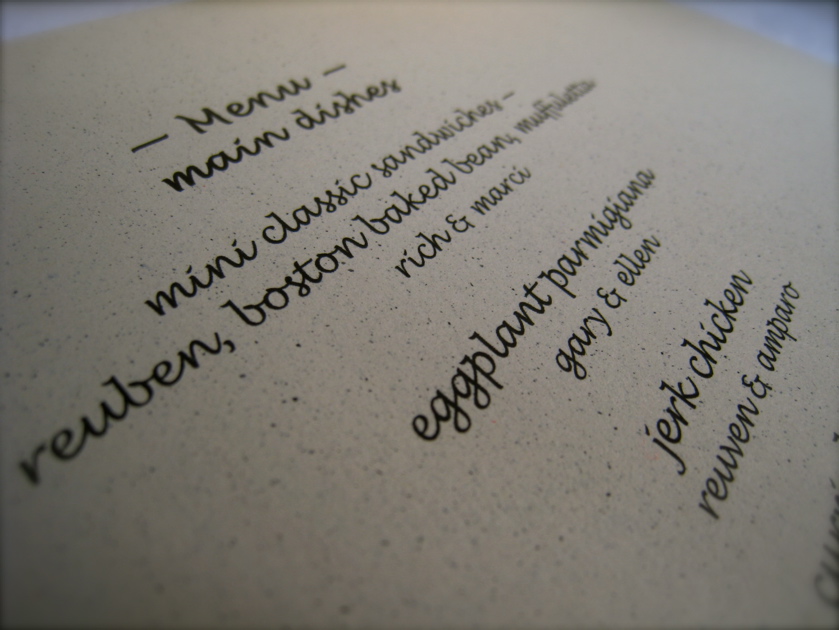 — Menu —
main dishes
mini classic sandwiches –
reuben, boston baked bean, muffuletta
rich & marci
eggplant parmigiana
gary & ellen
jerk chicken
reuven & amparo